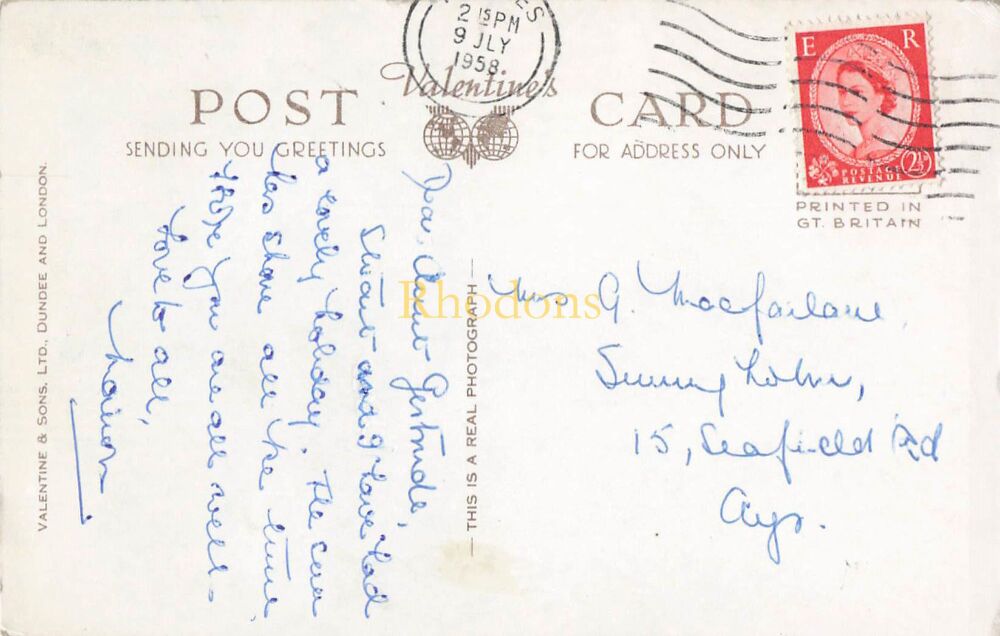 2 15 PM
9 JLY
1958
E R
2½
POSTAGE
REVENUE
PRINTED IN
GT. BRITAIN
POST
Valentine's
CARD
SENDING YOU GREETINGS
FOR ADDRESS ONLY
VALENTINE & SONS, LTD., DUNDEE AND LONDON.
THIS IS A REAL PHOTOGRAPH
Dear Aunt Gertrude,
Stuart and I have had
a lovely holiday. The
has shone all the time.
Hope you are all well.
Love to all,
Rhodons
Mrs G. Macfarlane,
Sunny
15, Seafield Rd
Ayr.